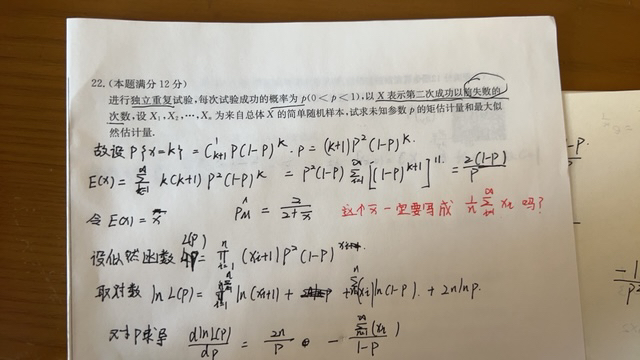 22.(本题满分 12 分)
进行独立重复试验,每次试验成功的概率为 p(0<p<1),以 X 表示第二次成功以前失败的
次数,设 X₁,X₂,…,Xₙ 为来自总体 X 的简单随机样本,试求未知参数 p 的矩估计量和最大似
然估计量.
故设 P{x=k} = C¹ₖ₊₁ P(1-P)ᵏ · P = (k+1)P²(1-P)ᵏ.
E(x) = Σ k(k+1) P²(1-P)ᵏ = P²(1-P) Σ [(1-P)ᵏ⁺¹]'' = 2(1-P)/P
令 E(x) = x̄ P̂_M = 2/(2+x̄) 这个 x̄ 一定要写成 1/n Σ xᵢ 吗?
设似然函数 L(P) = ∏ (xᵢ+1)P²(1-P)
取对数 ln L(P) = ln(xᵢ+1) + Σ(xᵢ)ln(1-P). + 2n lnp.
对P求导 dlnL(P)/dP = 2n/P - Σ(xᵢ)/(1-P)
-1